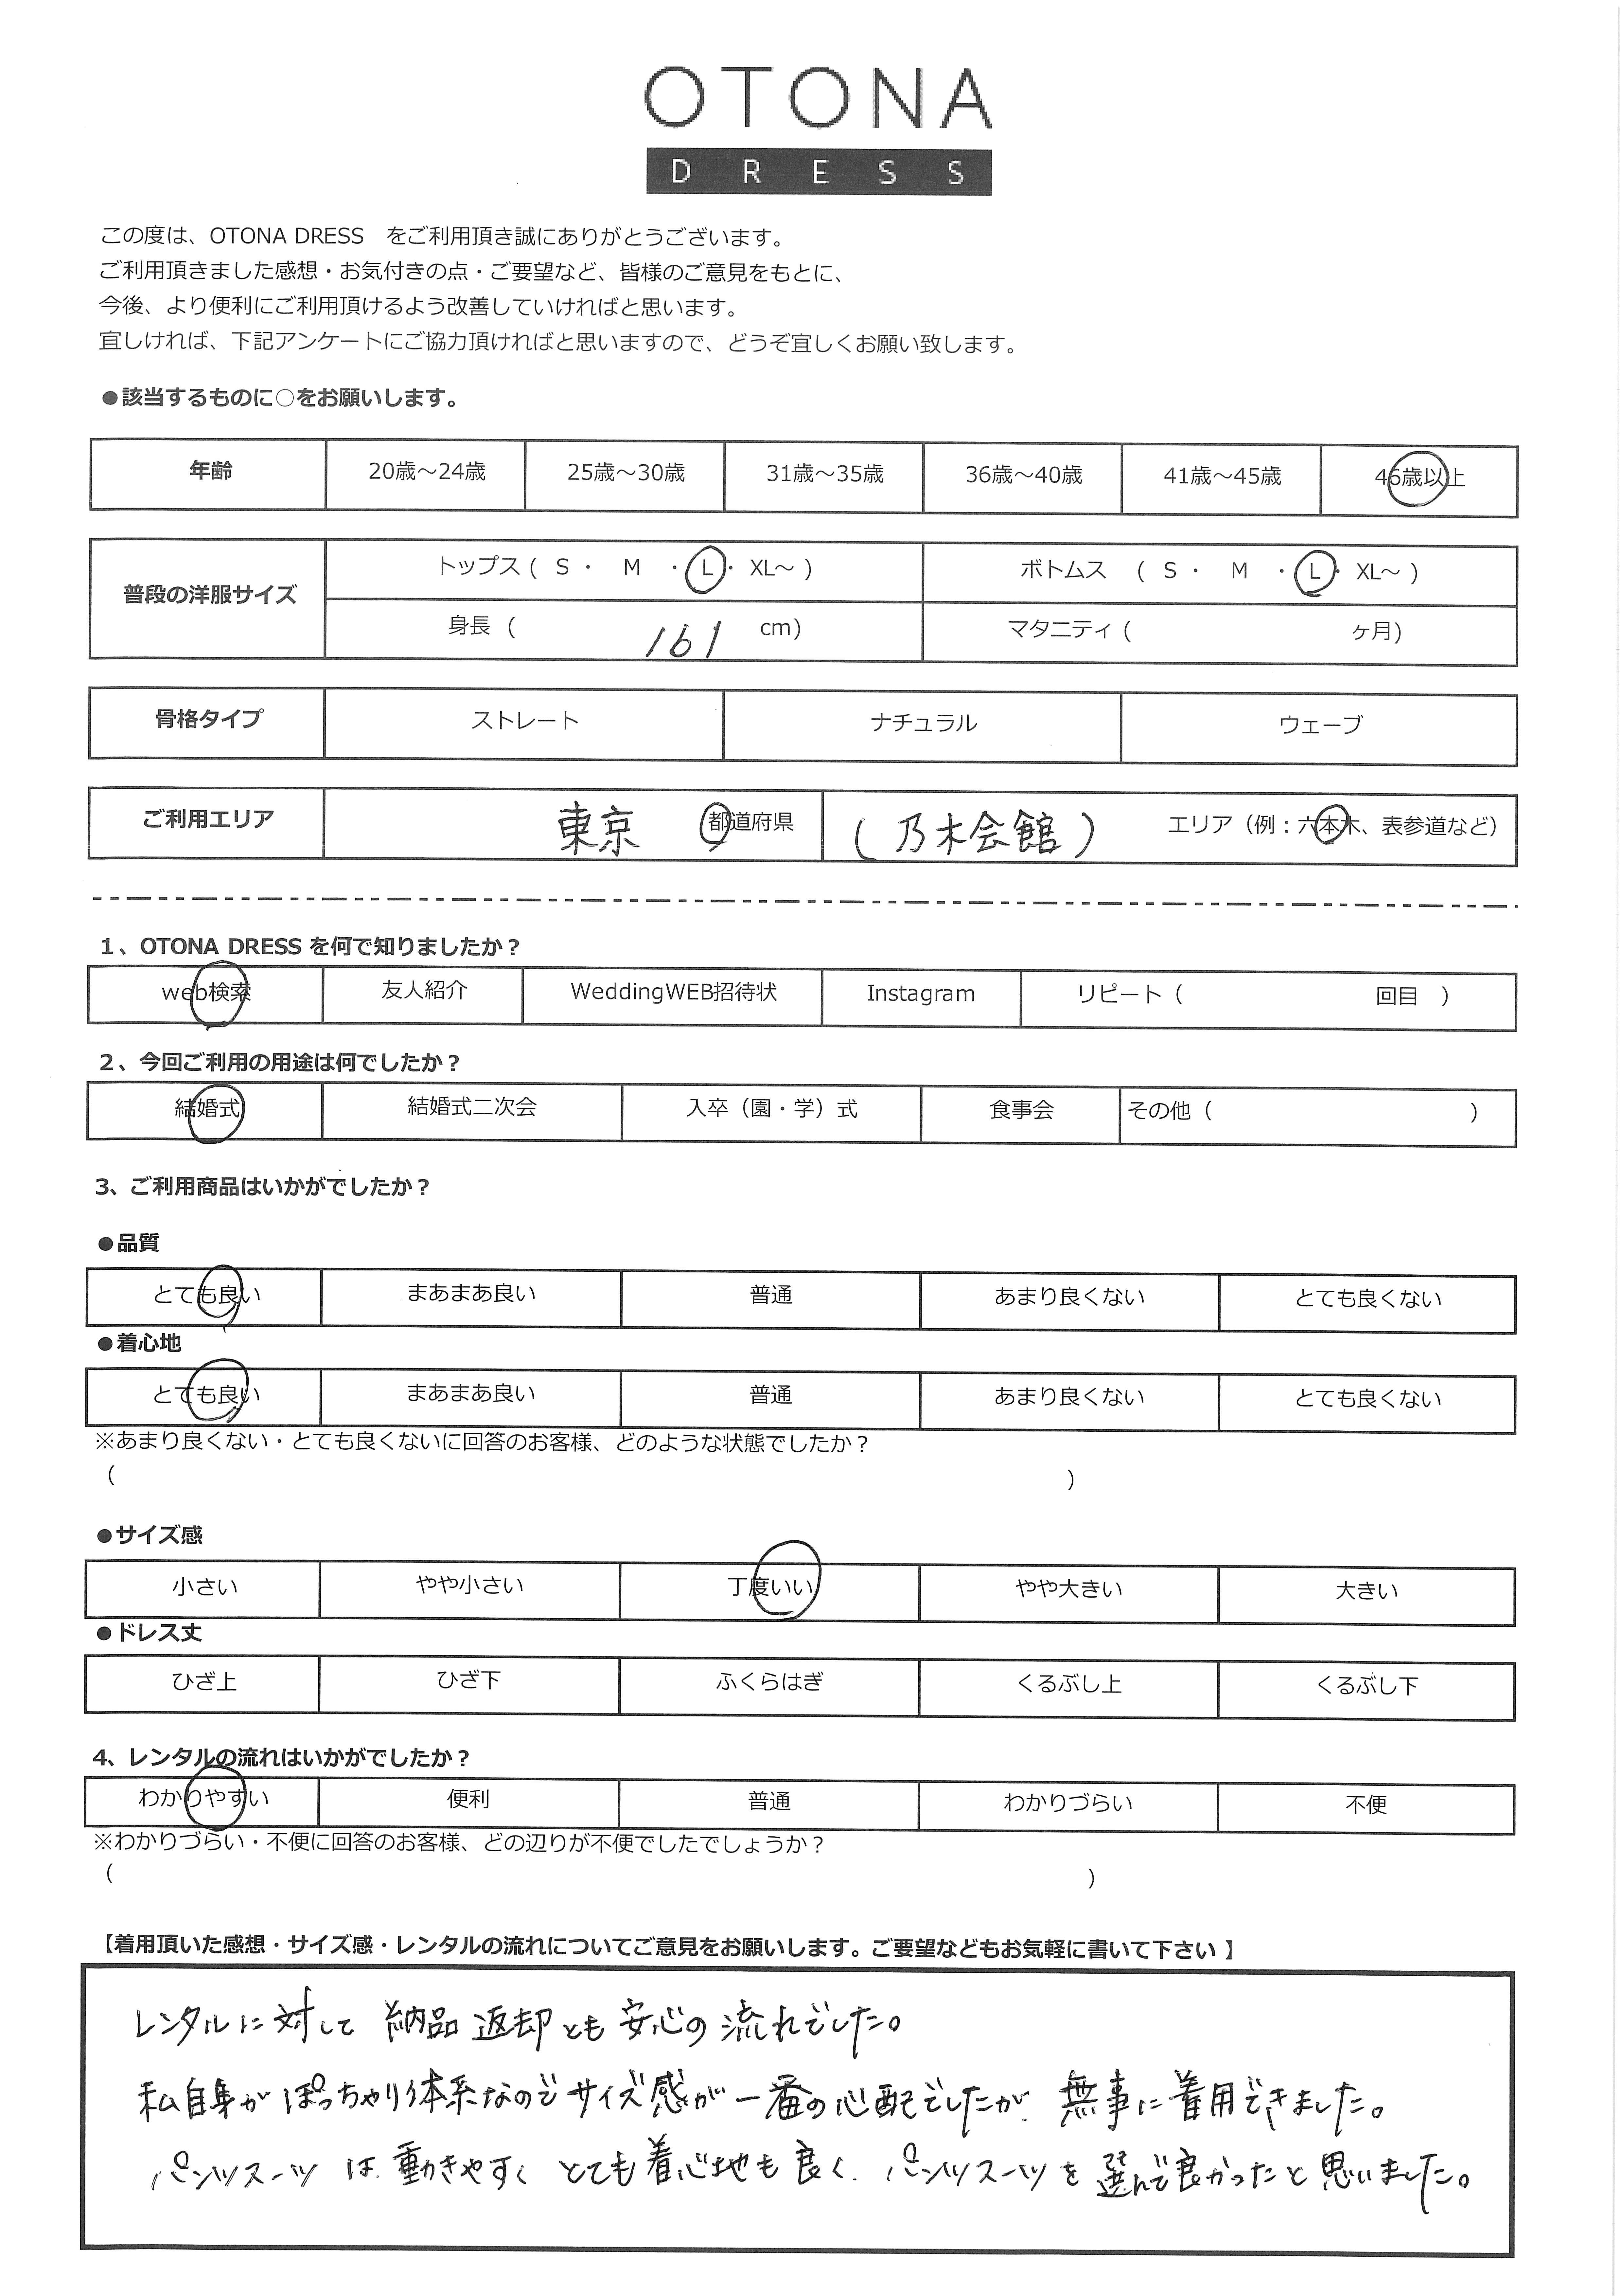 OTONA
DRESS
この度は、OTONA DRESS　をご利用頂き誠にありがとうございます。
ご利用頂きました感想・お気付きの点・ご要望など、皆様のご意見をもとに、
今後、より便利にご利用頂けるよう改善していければと思います。
宜しければ、下記アンケートにご協力頂ければと思いますので、どうぞ宜しくお願い致します。
●該当するものに○をお願いします。
年齢 20歳～24歳 25歳～30歳 31歳～35歳 36歳～40歳 41歳～45歳 46歳以上
普段の洋服サイズ トップス ( S ・ M ・ L ・ XL～ ) ボトムス ( S ・ M ・ L ・ XL～ )
身長 ( 161 cm) マタニティ ( ヶ月)
骨格タイプ ストレート ナチュラル ウェーブ
ご利用エリア 東京 都道府県 (乃木会館) エリア（例：六本木、表参道など）
1、OTONA DRESS を何で知りましたか？
web検索 友人紹介 WeddingWEB招待状 Instagram リピート（ 回目 ）
2、今回ご利用の用途は何でしたか？
結婚式 結婚式二次会 入卒（園・学）式 食事会 その他（ ）
3、ご利用商品はいかがでしたか？
●品質
とても良い まあまあ良い 普通 あまり良くない とても良くない
●着心地
とても良い まあまあ良い 普通 あまり良くない とても良くない
※あまり良くない・とても良くないに回答のお客様、どのような状態でしたか？
（ ）
●サイズ感
小さい やや小さい 丁度いい やや大きい 大きい
●ドレス丈
ひざ上 ひざ下 ふくらはぎ くるぶし上 くるぶし下
4、レンタルの流れはいかがでしたか？
わかりやすい 便利 普通 わかりづらい 不便
※わかりづらい・不便に回答のお客様、どの辺りが不便でしたでしょうか？
（ ）
【着用頂いた感想・サイズ感・レンタルの流れについてご意見をお願いします。ご要望などもお気軽に書いて下さい 】
レンタルに対して 納品 返却とも 安心の 流れでした。
私自身が ぽっちゃり体系なので サイズ感が 一番の心配でしたが 無事に着用できました。
パンツスーツ は 動きやすく とても着心地も良く パンツスーツを 選んで良かったと思いました。